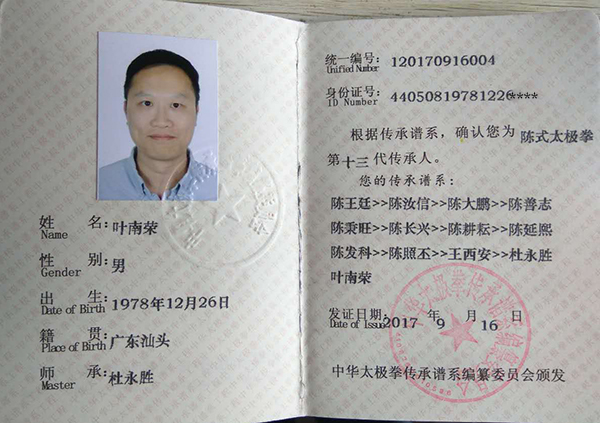 姓 名:叶南荣
Name
性 别:男
Gender
出 生:1978年12月26日
Date of Birth
籍 贯:广东汕头
Place of Birth
师 承:杜永胜
Master
统一编号:120170916004
Unified Number
身份证号:44050819781226****
ID Number
根据传承谱系,确认您为 陈式太极拳
第十三代传承人。
您的传承谱系:
陈王廷>>陈汝信>>陈大鹏>>陈善志
陈秉旺>>陈长兴>>陈耕耘>>陈延熙
陈发科>>陈照丕>>王西安>>杜永胜
叶南荣
发证日期:2017 年 9 月 16 日
Date of Issue
中华太极拳传承谱系编纂委员会颁发